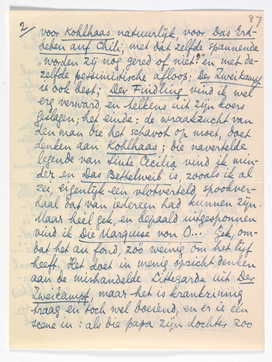 2
87
voor Kohlhaas natuurlijk, voor Das Erd-
beben auf Chili, met dat zelfde spannende
"worden zij nog gered of niet?" en met de-
zelfde pessimistische afloop; Der Zweikampf
is ook best; Der Findling vind ik wel
erg verward en telkens uit zijn koers
geslagen; het einde: de wraakzucht van
den man die het schavot op moet, doet
denken aan Kohlhaas; die navertelde
legende van Sinte Cecilia vind ik min-
der en Das Bettelweib is, zooals ik al
zei, eigenlijk een vlotverteld spookver-
haal dat van iedereen had kunnen zijn.
Maar heel gek, en bepaald uitgesponnen
vind ik Die Marquise von O... Gek, om-
dat het au fond, zoo weinig om het lijf
heeft. Het doet in menig opzicht denken
aan de mishandelde Littegarde uit Der
Zweikampf, maar het is kranzinnig
traag en toch wel boeiend, en er is een
scène in: als die papa zijn dochter zoo